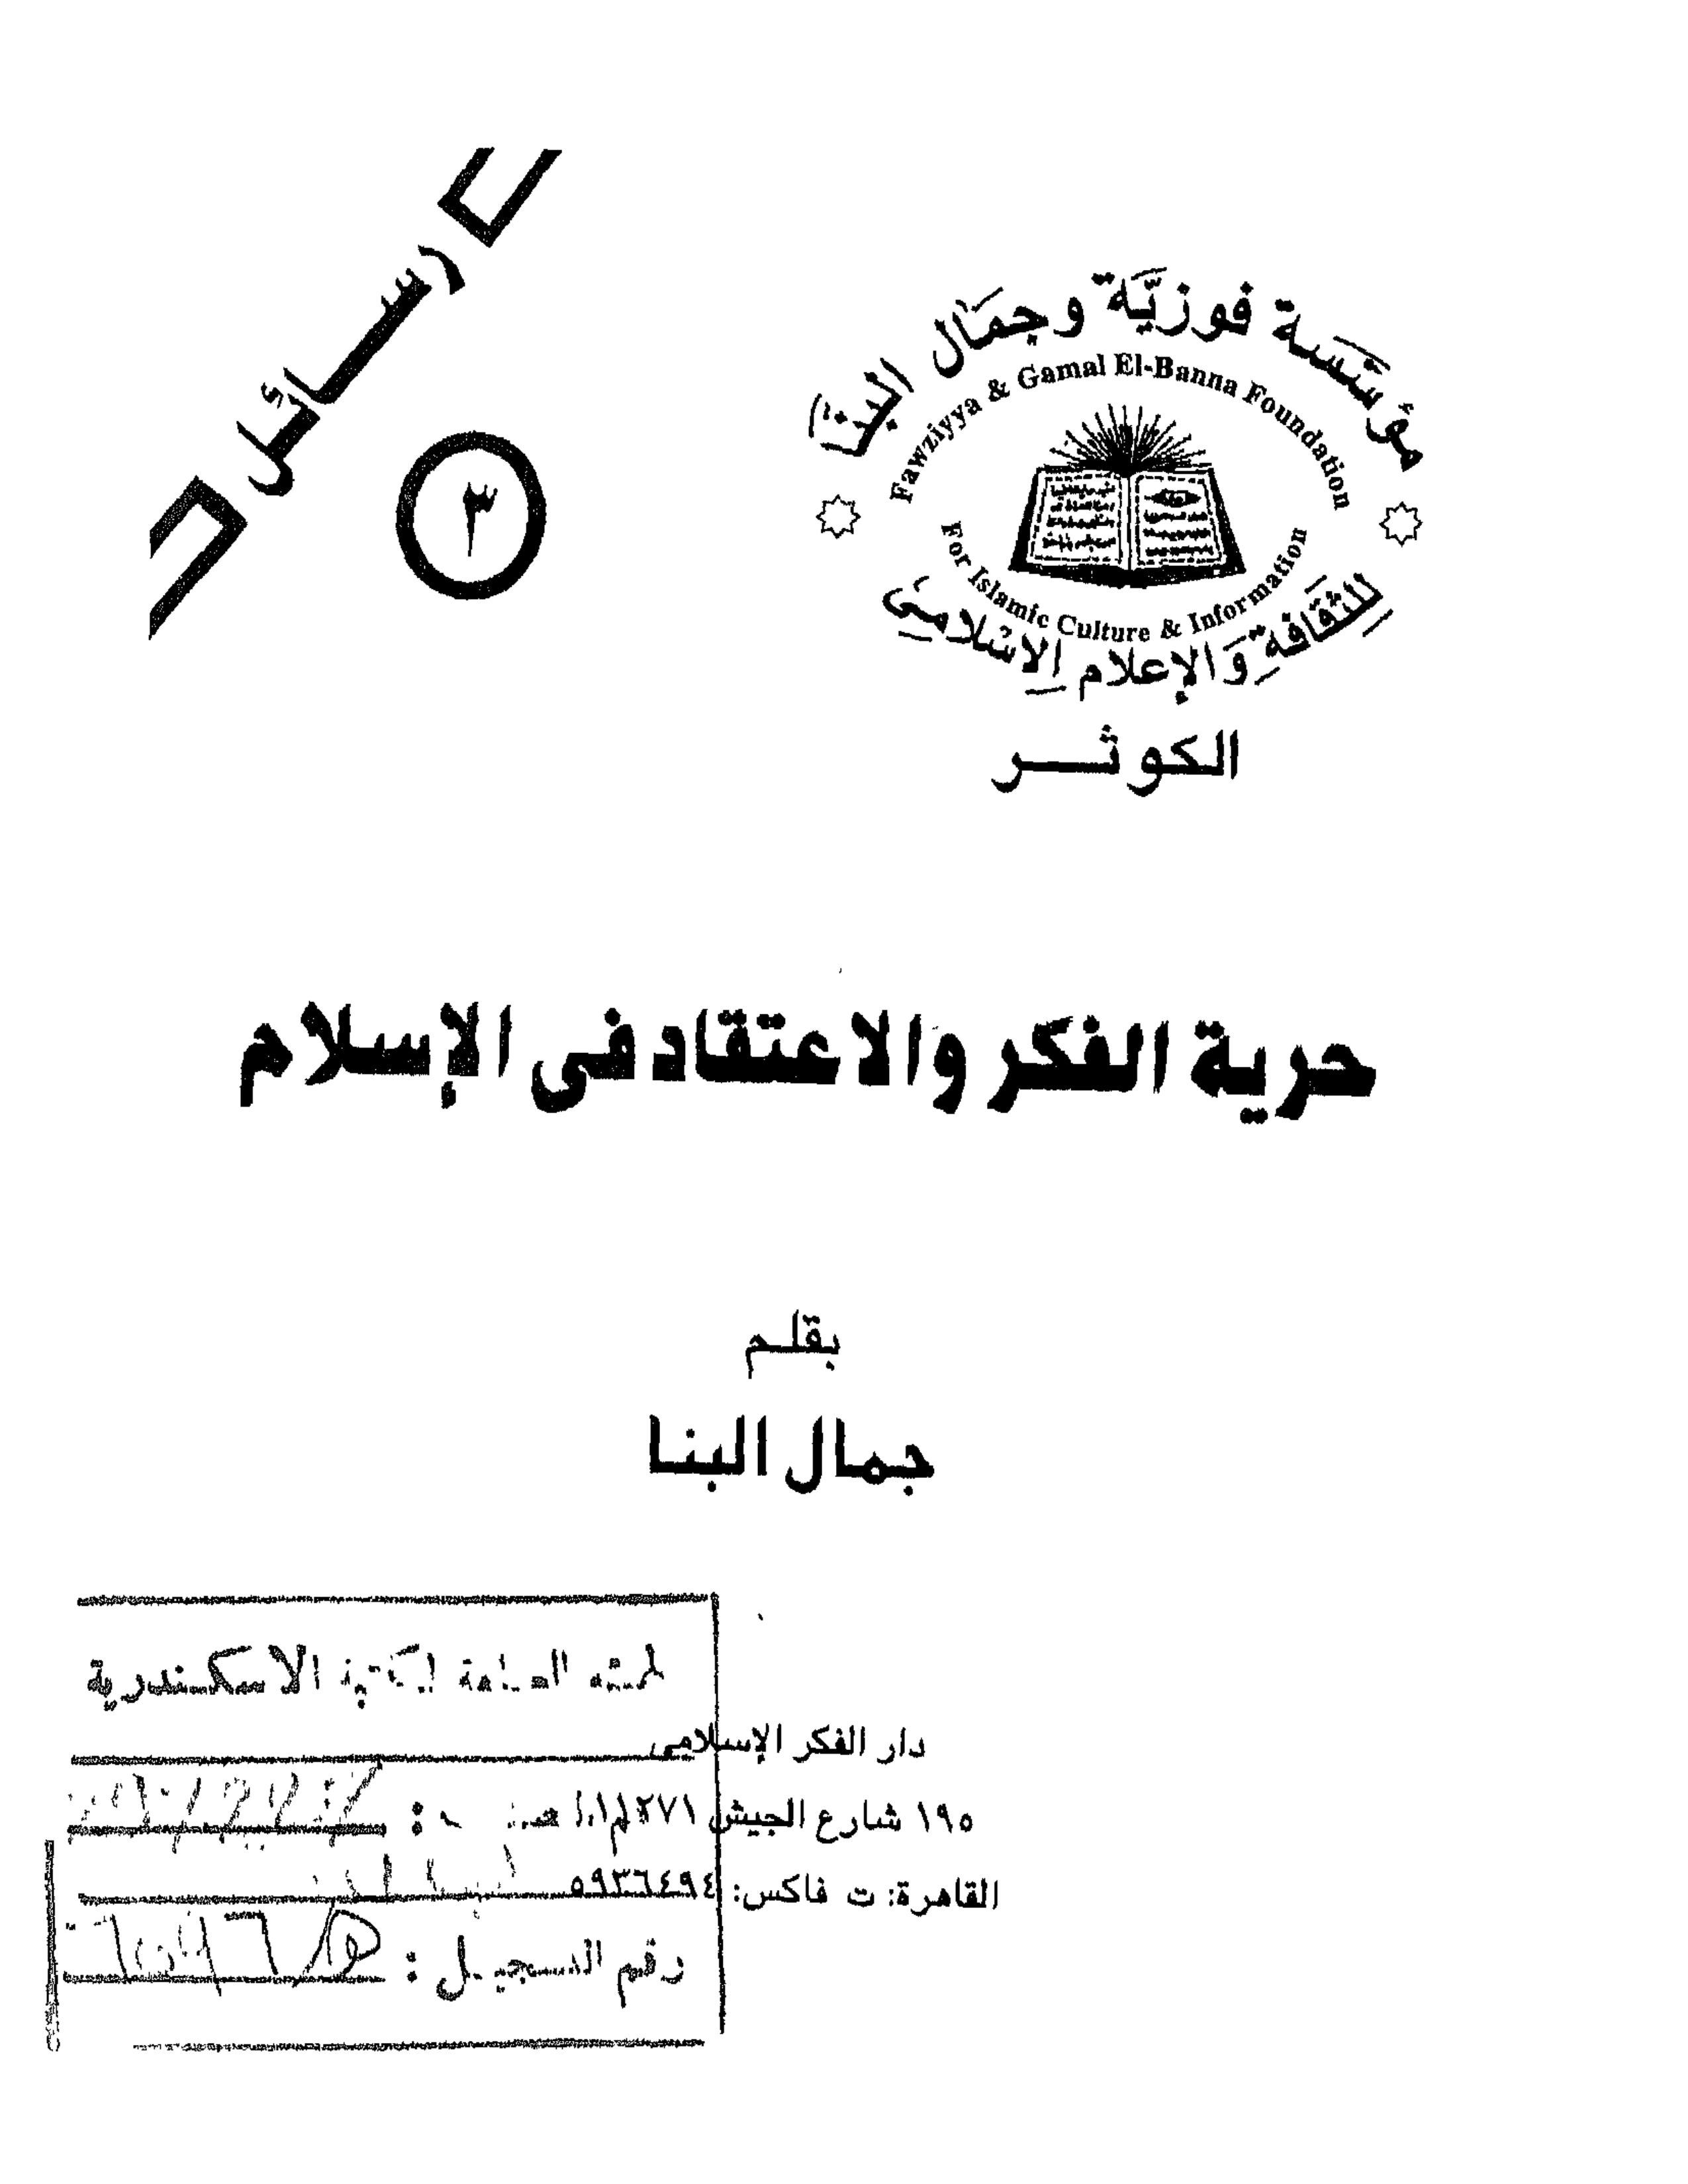 رسائل
٣
مؤسسة فوزية وجمال البنا
Fawziyya & Gamal El-Banna Foundation
For Islamic Culture & Information
للثقافة والإعلام الاسلامى
الكوثر
حرية الفكر والاعتقاد فى الإسلام
بقلم
جمال البنا
الاسكندرية
دار الفكر الإسلامى
١٩٥ شارع الجيش ١١٢٧١
القاهرة: ت فاكس: ٥٩٣٦٤٩٤
رقم التسجيل :